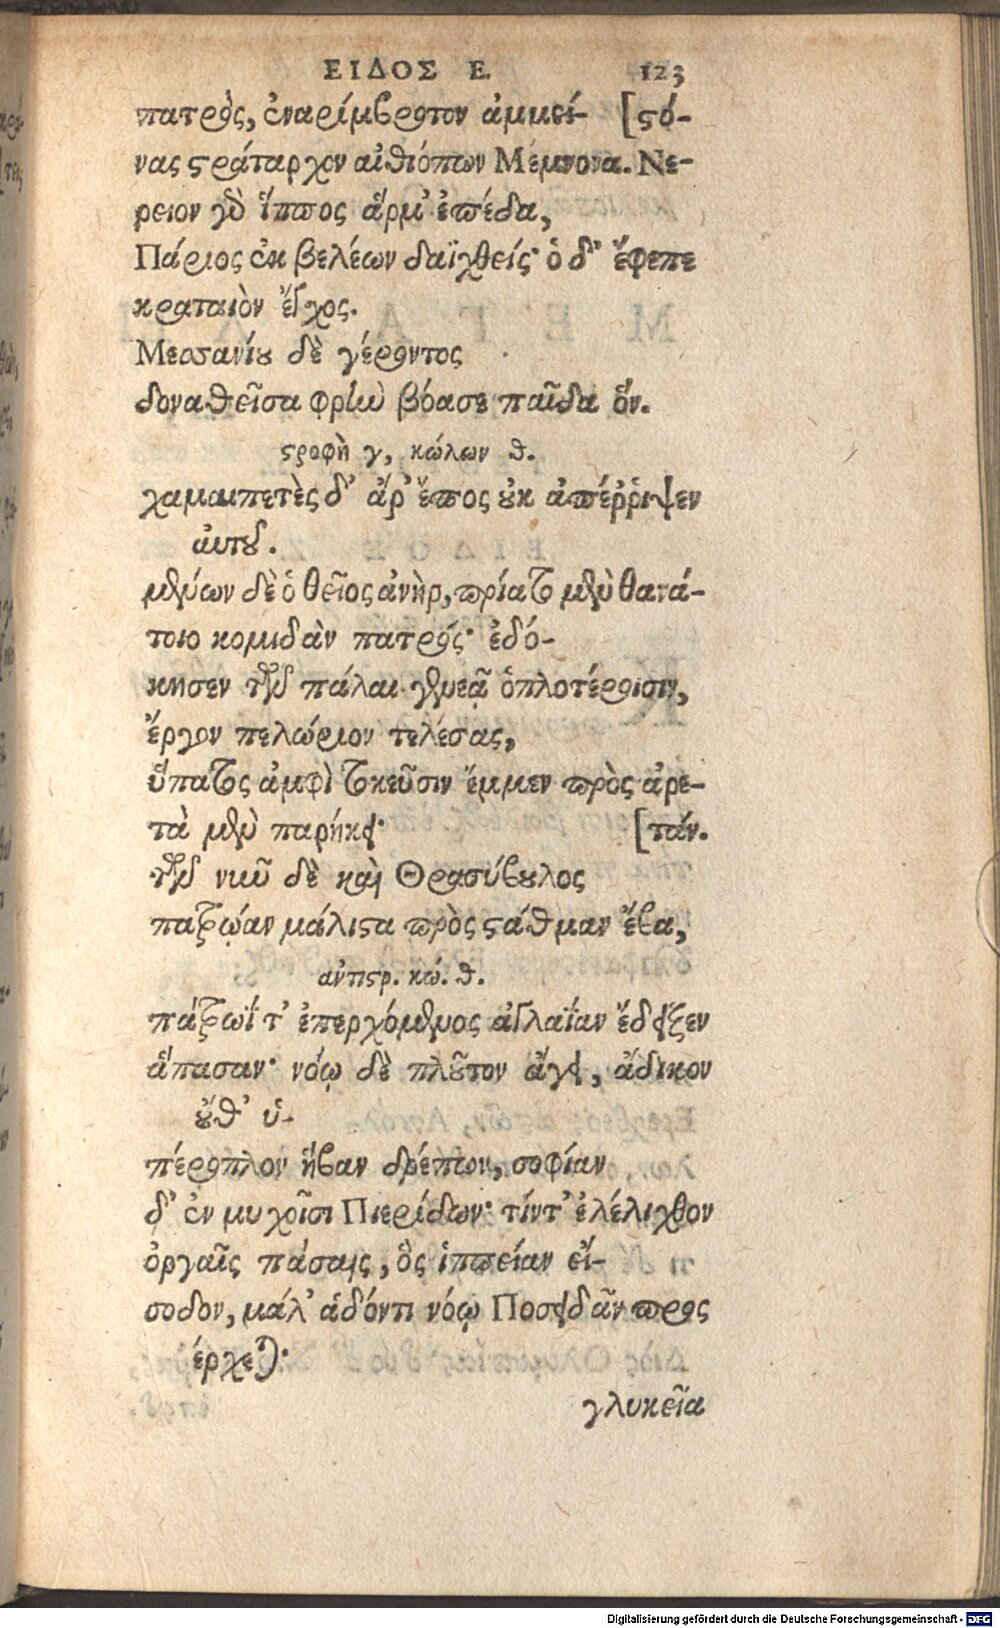 ΕΙΔΟΣ Ε. 123
πατρὸς, ἐναρίμβροτον ἀμμεί- [ϛό-
νας ϛράταρχον αἰθιόπων Μέμνονα. Νε-
ρειον γὸ ἵππος ἅρμ' ἐπέδα,
Πάριος ἐκ βελέων δαϊχθείς· ὁ δ' ἔφεπε
κραταιὸν ἔγχος.
Μεσσανίου δὲ γέροντος
δοναθεῖσα φρὴν βόασε παῖδα ὅν.
ϛροφὴ γ, κώλων θ.
χαμαιπετὲς δ' ἄρ' ἔπος οὐκ ἀπέῤῥιψεν
αὐτοῦ.
μένων δὲ ὁ θεῖος ἀνὴρ, πρίατο μὲν θανά-
τοιο κομιδὰν πατρός· ἐδό-
κησεν τῶν πάλαι γενεᾷ ὁπλοτέροισιν,
ἔργον πελώριον τελέσας,
ὕπατος ἀμφὶ τοκεῦσιν ἔμμεν πρὸς ἀρε-
τὰ μὲν παρήκει· [τάν.
τῶν νιοῦ δὲ καὶ Θρασύβουλος
πατρῴαν μάλιϛα πρὸς ϛάθμαν ἔβα,
ἀντιϛρ. κώ. θ.
πάτρωΐ τ' ἐπερχόμενος ἀγλαΐαν ἔδειξεν
ἅπασαν· νόῳ δὲ πλοῦτον ἄγει, ἄδικον
οὔθ' ὑ-
πέροπλον ἥβαν δρέπων, σοφίαν
δ' ἐν μυχοῖσι Πιερίδων· τίντ' ἐλέλιχθον
ὀργαῖς πάσαις, ὃς ἱππείαν εἴ-
σοδον, μάλ' ἁδόντι νόῳ Ποσειδᾶν προς
έρχεται·
γλυκεῖα
Digitalisierung gefördert durch die Deutsche Forschungsgemeinschaft - DFG